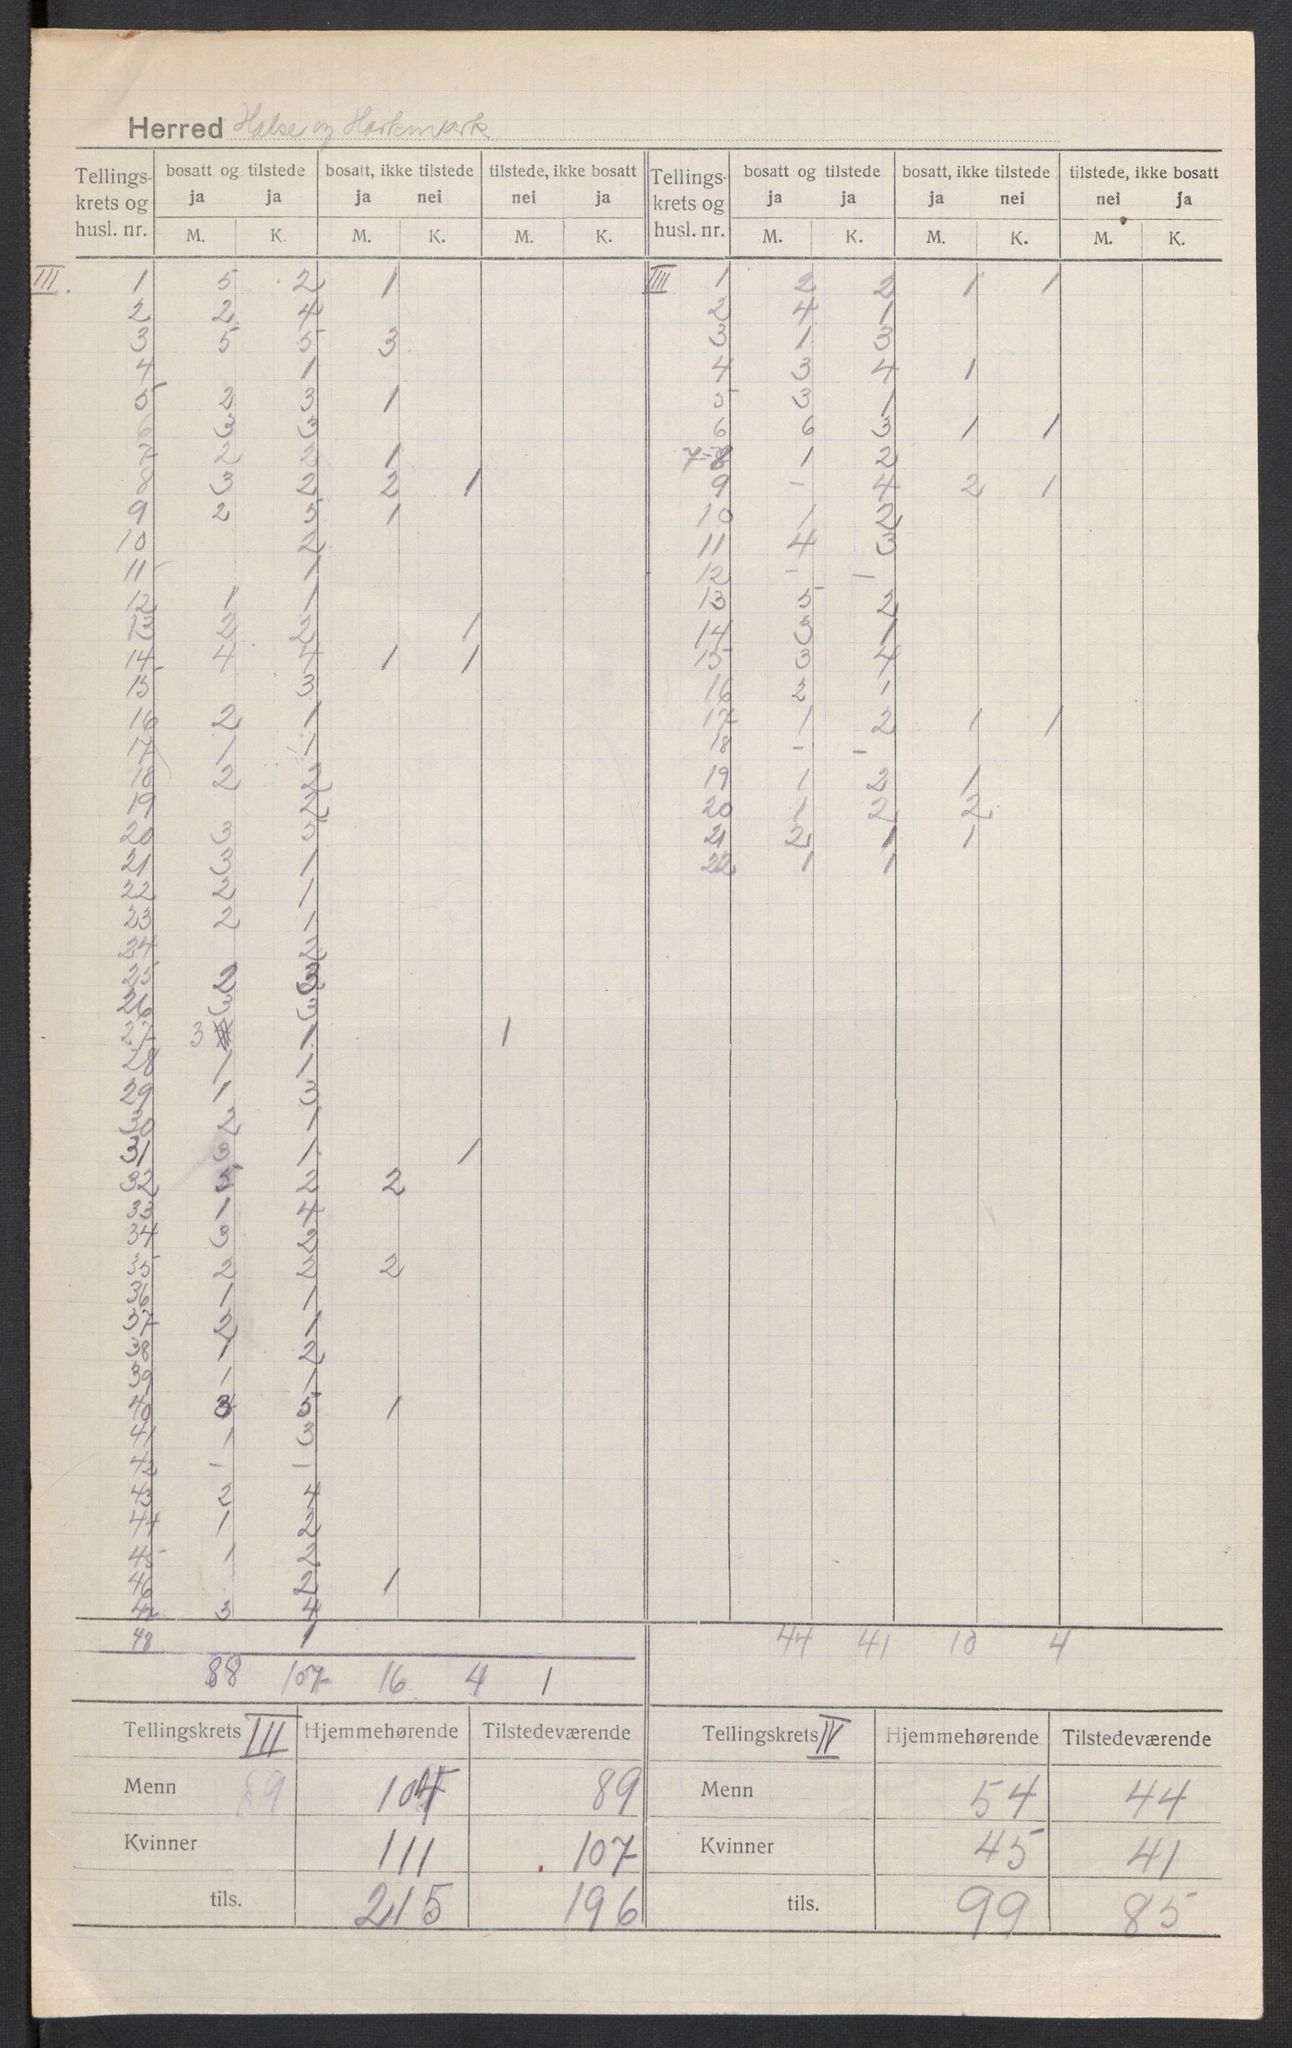 Herred Halse og Harkmark
Tellings- krets og husl. nr. | bosatt og tilstede ja ja | bosatt, ikke tilstede ja nei | tilstede, ikke bosatt nei ja | Tellings- krets og husl. nr. | bosatt og tilstede ja ja | bosatt, ikke tilstede ja nei | tilstede, ikke bosatt nei ja
M. K. M. K. M. K. M. K. M. K. M. K.
III. 1 5 2 1
2 2 4
3 5 5 3
4 1
5 2 3 1
6 3 3
7 2 2 1
8 3 2 2 1
9 2 5 1
10 2
11 1
12 1 1
13 2 2 1
14 4 4 1 1
15 3
16 2 1
17 1 1
18 2 2
19 2
20 3 5
21 3 1
22 2 1
23 2 1
24 2
25 2 3
26 3 3
27 3 1 1
28 1 1
29 1 3
30 2 1
31 3 1 1
32 2 2
33 1 4
34 3 2
35 2 2 2
36 1 1
37 2 1
38 1 2
39 1 1
40 3 5 1
41 1 3
42 1 1
43 2 4
44 1 2
45 1 2
46 2 1
47 3 4
48 1
88 107 16 4 1
IIII 1 2 2 1 1
2 4 1
3 1 3
4 3 4 1
5 3 1
6 6 3 1 1
7-8 1 2
9 - 4 2 1
10 1 2
11 4 3
12 - -
13 5 2
14 3 1
15 3 4
16 2 1
17 1 2 1 1
18 - -
19 1 2 1
20 1 2 2
21 2 1 1
22 1 1
44 41 10 4
Tellingskrets III Hjemmehørende Tilstedeværende
Menn 89 104 89
Kvinner 111 107
tils. 215 196
Tellingskrets IV Hjemmehørende Tilstedeværende
Menn 54 44
Kvinner 45 41
tils. 99 85